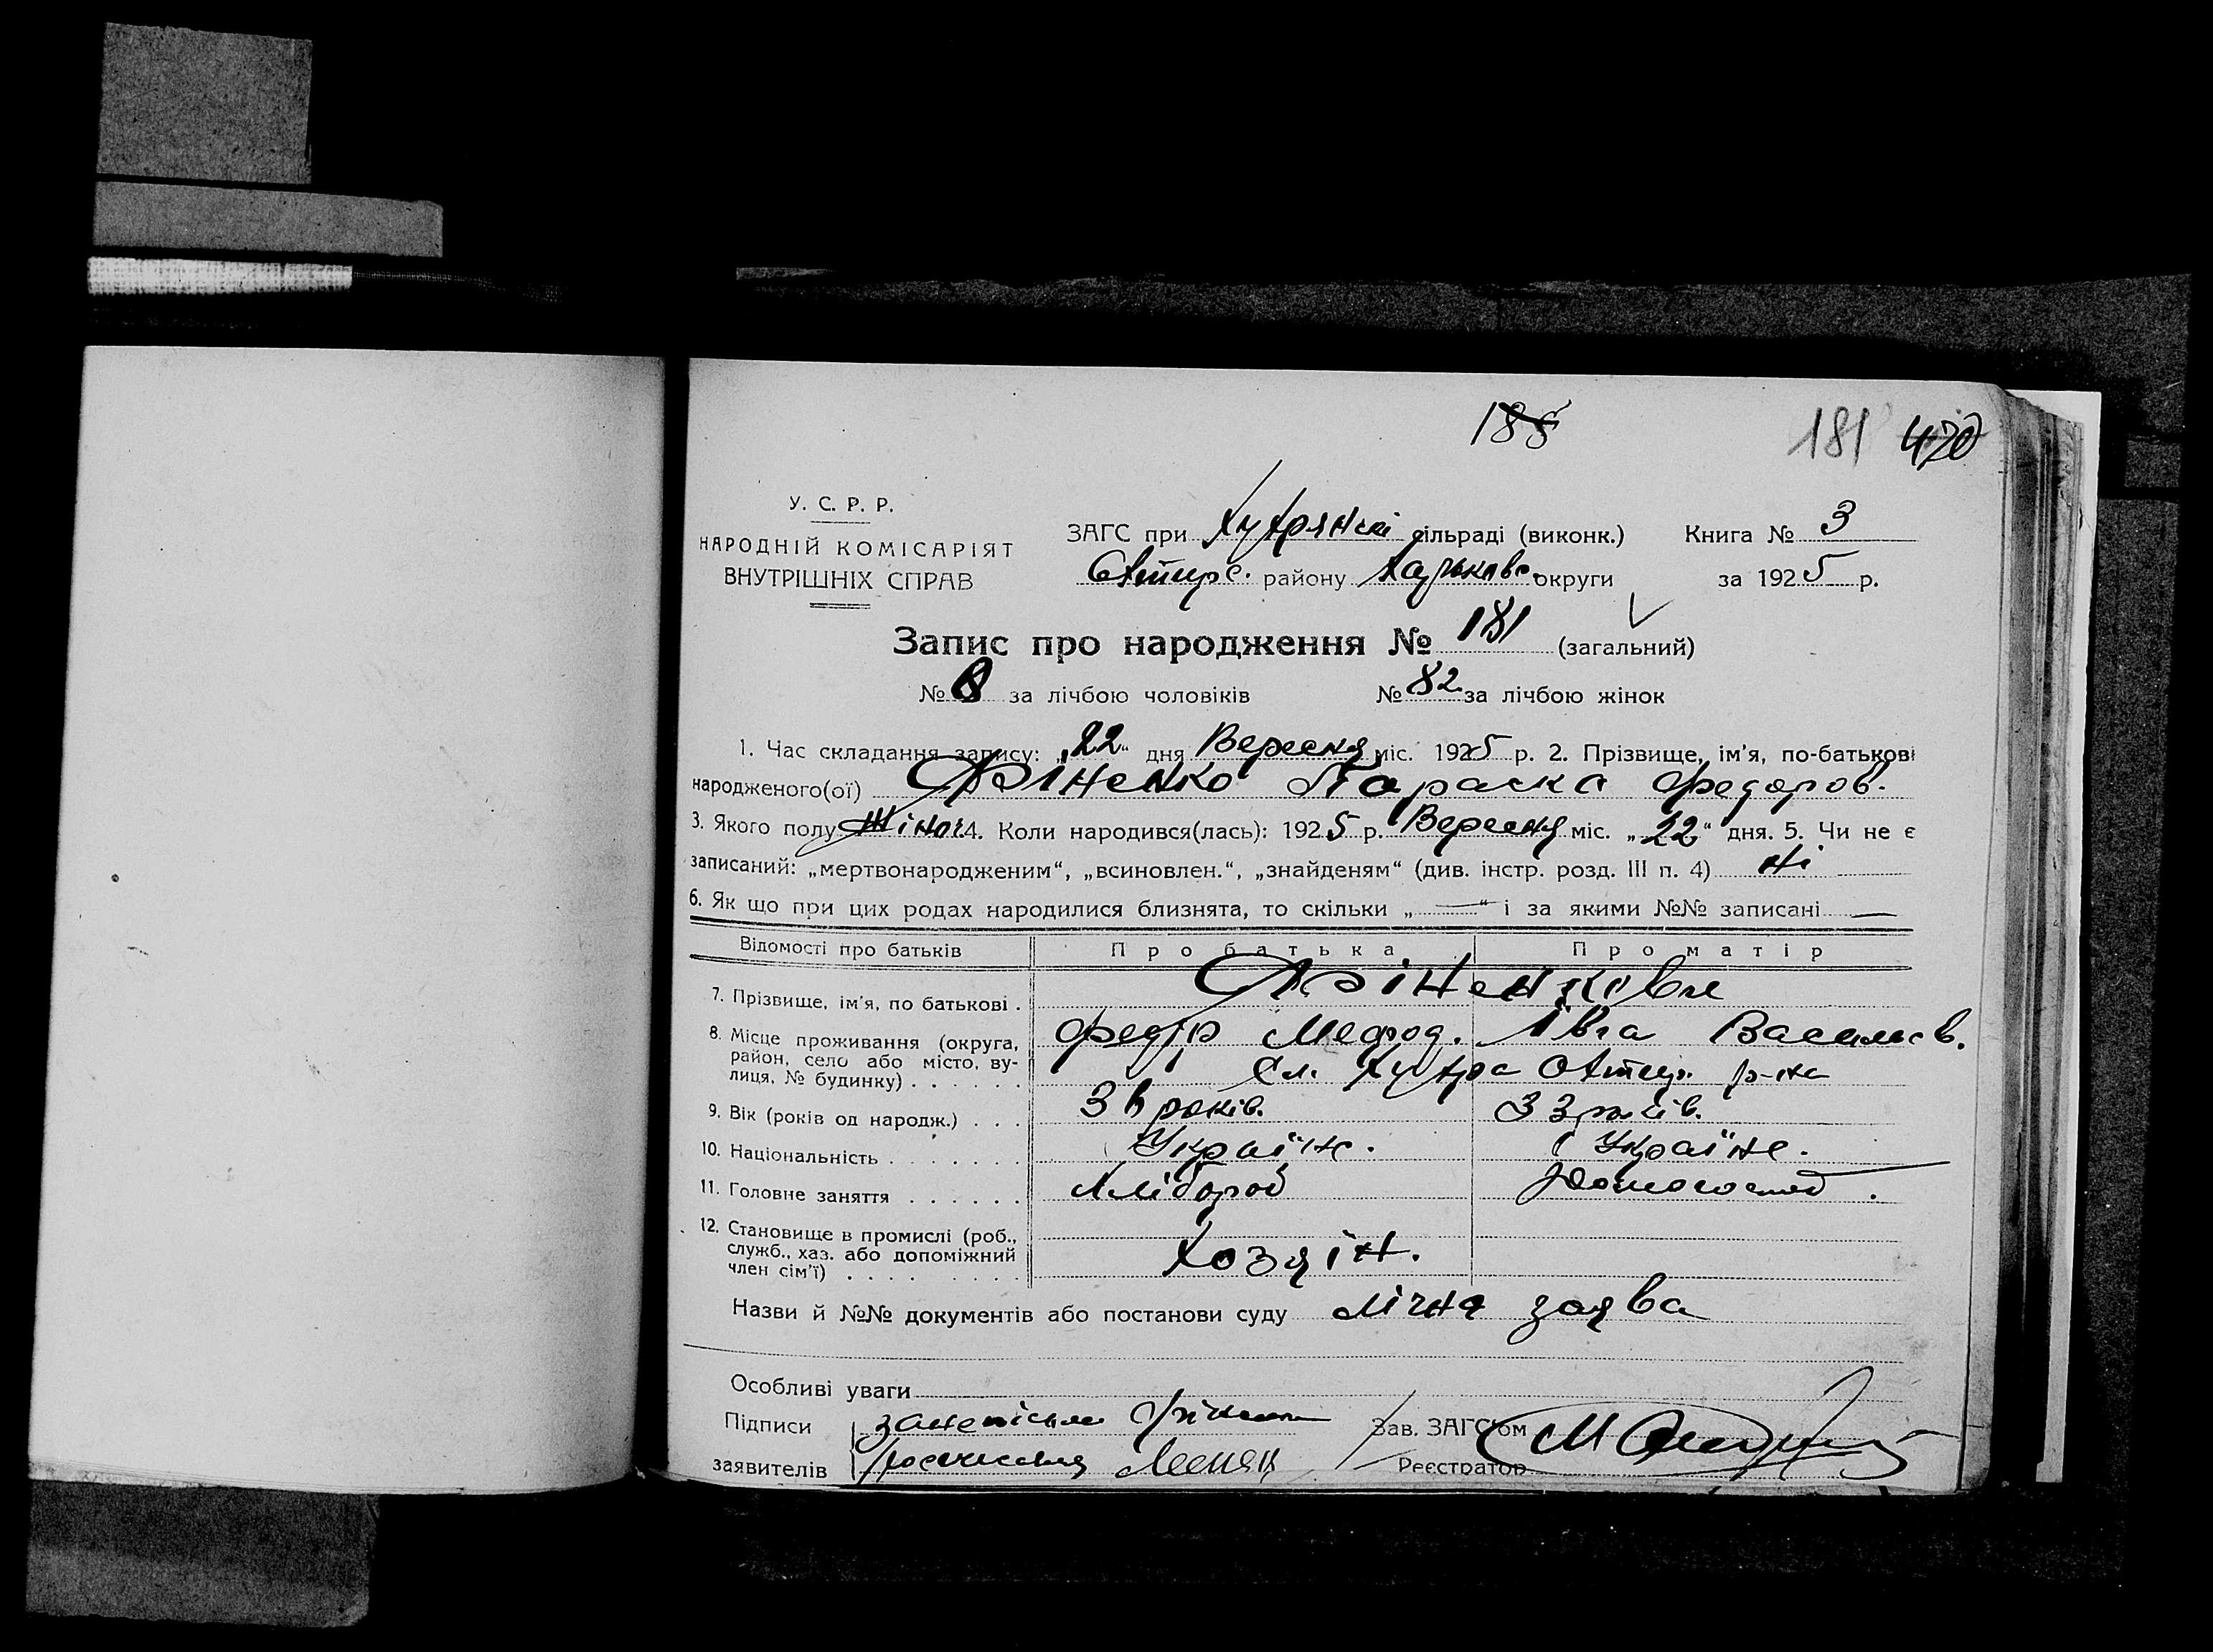 188
181 470
У. С. Р. Р.
НАРОДНІЙ КОМІСАРІЯТ
ВНУТРІШНІХ СПРАВ
ЗАГС при Хухрянскі сільраді (виконк.) Книга № 3
Охтирс. району Харьковс. округи за 1925 р.
Запис про народження № 181 (загальний)
№ за лічбою чоловіків № 82 за лічбою жінок
1. Час складання запису: „22“ дня Вересня міс. 1925 р. 2. Прізвище, ім'я, по-батькові
народженого(ої) Фріненко Параска Федоров.
3. Якого полу Жіноч. 4. Коли народився(лась): 1925 р. Вересня міс. „22“ дня. 5. Чи не є
записаний: „мертвонародженим“, „всиновлен.“, „знайденям“ (див. інстр. розд. III п. 4) ні
6. Як що при цих родах народилися близнята, то скільки „ — “ і за якими №№ записані —
Відомості про батьків Про батька Про матір
7. Прізвище, ім'я, по батькові . Фріненкови
Федір Мефод. Івга Васильєв.
8. Місце проживання (округа, район, село або місто, ву-
лиця, № будинку) . . . . . . Сл. Хухра Охтир. р-на
9. Вік (років од народж.) . . . років. 33 років.
10. Національність . . . . . . Україн. Україн.
11. Головне заняття . . . . . . Хлібороб Домогоспод.
12. Становище в промислі (роб.,
служб., хаз. або допоміжний
член сім'ї) . . . . . . . . Хозяїн.
Назви й №№ документів або постанови суду Лічна заява
Особливі уваги
Підписи Зав. ЗАГС'ом
заявителів Реєстратор